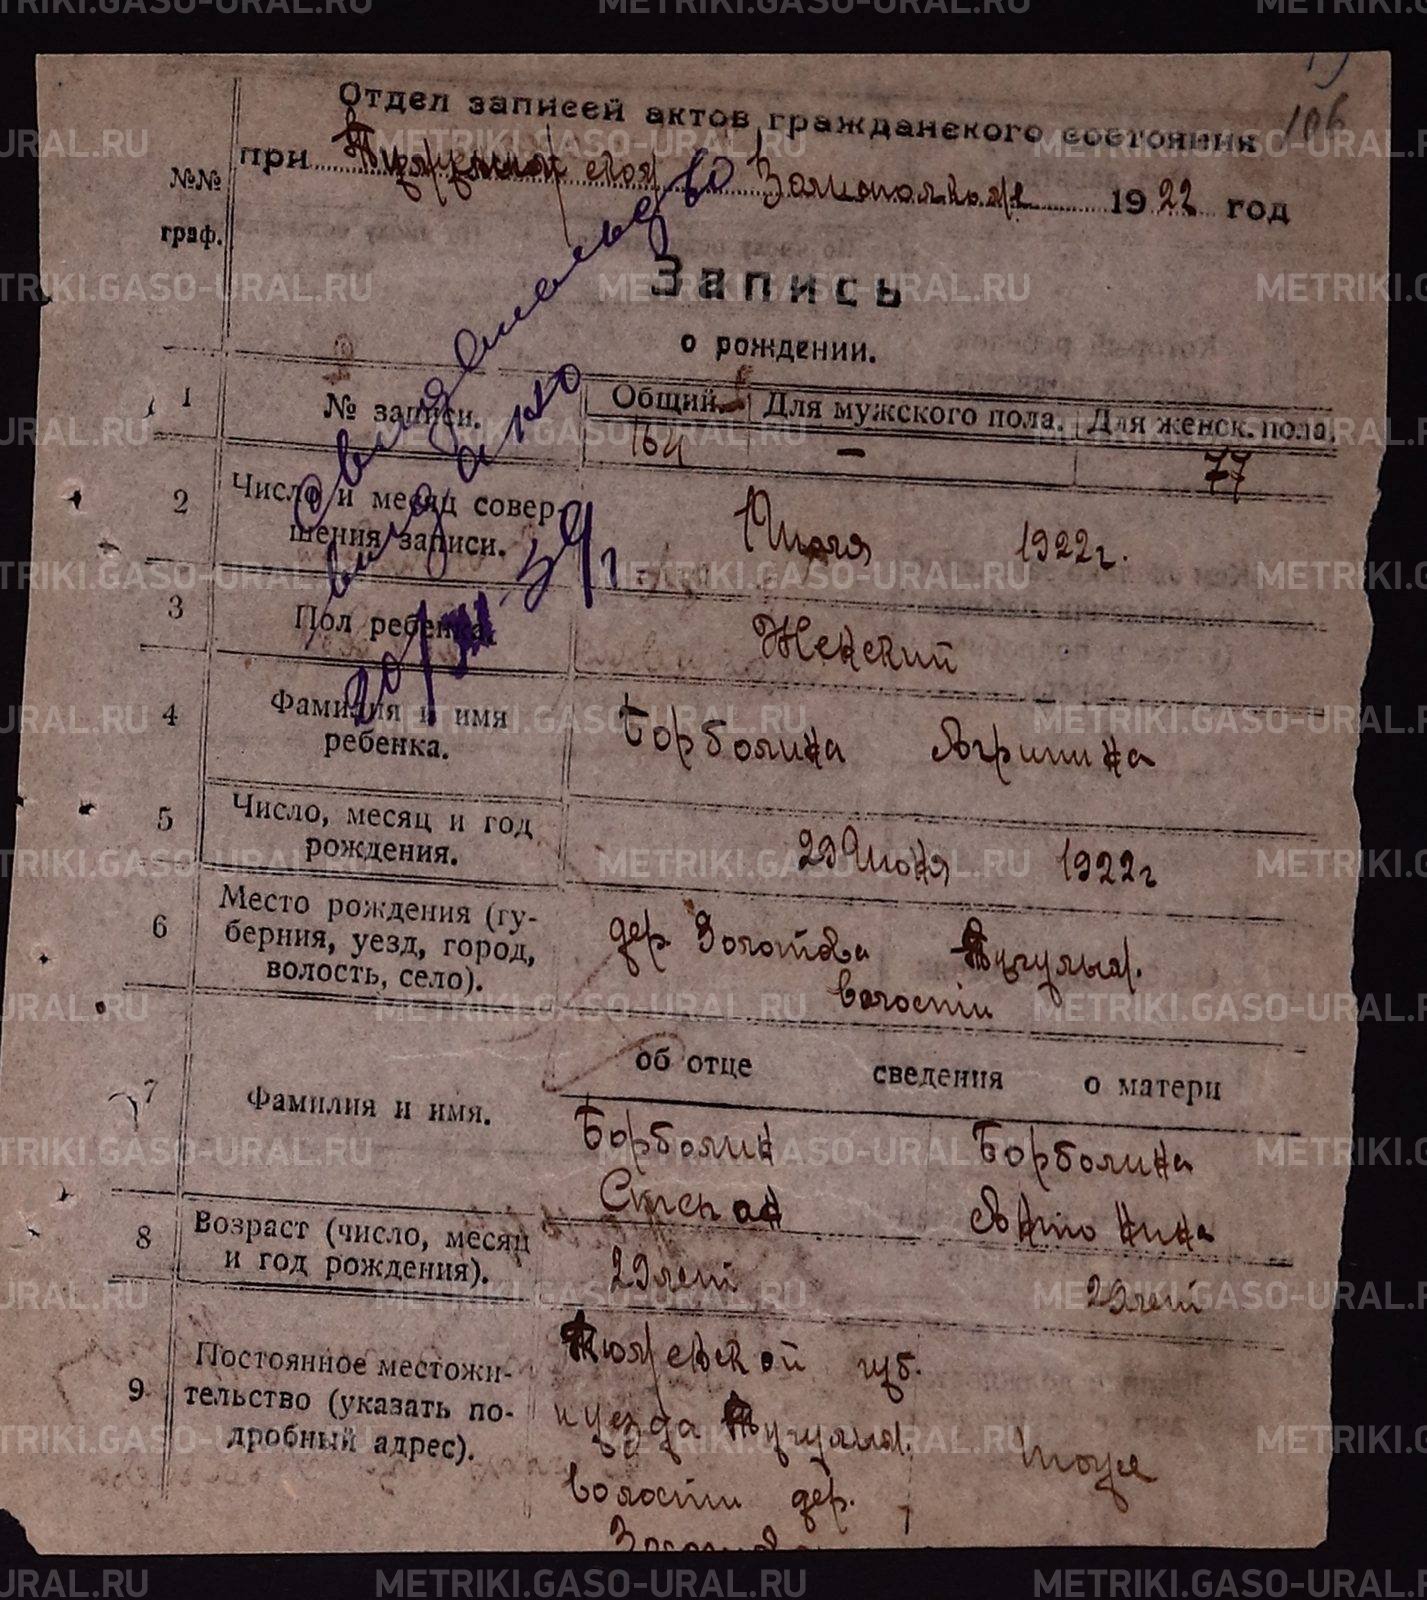 106
Отдел записей актов гражданского состояния
при Волисполкоме 1922 год
№№
граф.
Запись
о рождении.
Свидетельство
выдано
39 г
1 № записи. Общий. Для мужского пола. Для женск. пола.
164 — 77
2 Число и месяц совер-
шения записи.
1 Июля 1922 г.
3 Пол ребенка. Женский
4 Фамилия и имя
ребенка.
Борболина Агрипина
5 Число, месяц и год
рождения.
29 Июня 1922 г
6 Место рождения (гу-
берния, уезд, город,
волость, село).
дер Золотова Тугулым.
волости
об отце сведения о матери
7 Фамилия и имя.
Борболин Борболина
Степан Антонина
8 Возраст (число, месяц
и год рождения).
29 лет 29 лет
9 Постоянное местожи-
тельство (указать по-
дробный адрес).
Тюменской губ.
и уезда Тугулым.
волости дер.
Золотова
тоже
METRIKI.GASO-URAL.RU